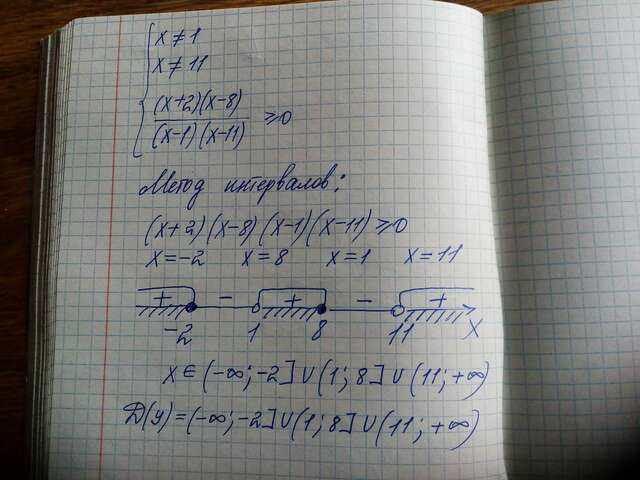 x ≠ 1
x ≠ 11
(x+2)(x-8)
(x-1)(x-11) ≥ 0
Метод интервалов:
(x+2)(x-8)(x-1)(x-11) ≥ 0
x=-2 x=8 x=1 x=11
+ - + - +
-2 1 8 11 x
x ∈ (-∞; -2] ∪ (1; 8] ∪ (11; +∞)
D(y) = (-∞; -2] ∪ (1; 8] ∪ (11; +∞)